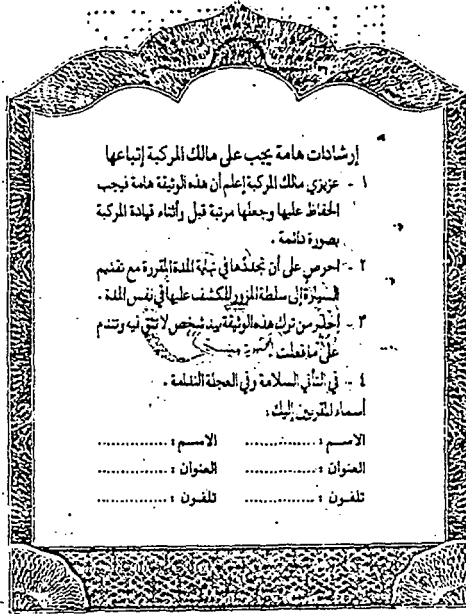 إرشادات هامة يجب على مالك المركبة إتباعها
١ - عزيزي مالك المركبة إعلم أن هذه الوثيقة هامة فيجب
الحفاظ عليها وجعلها مرتبة قبل وأثناء قيادة المركبة
بصورة دائمة .
٢ - احرص على أن تجددها في نهاية المدة المقررة مع تقديم
السيارة إلى سلطة المرور للكشف عليها في نفس المدة .
٣ - إحذر من ترك هذه الوثيقة بيد شخص لا تثق فيه وتندم
على ما فعلت .
٤ - في التأني السلامة وفي العجلة الندامة .
أسماء المقربين إليك :
الاســم : .............. الاسـم : ..............
العنوان : .............. العنوان : ..............
تلفـون : .............. تلفـون : ..............